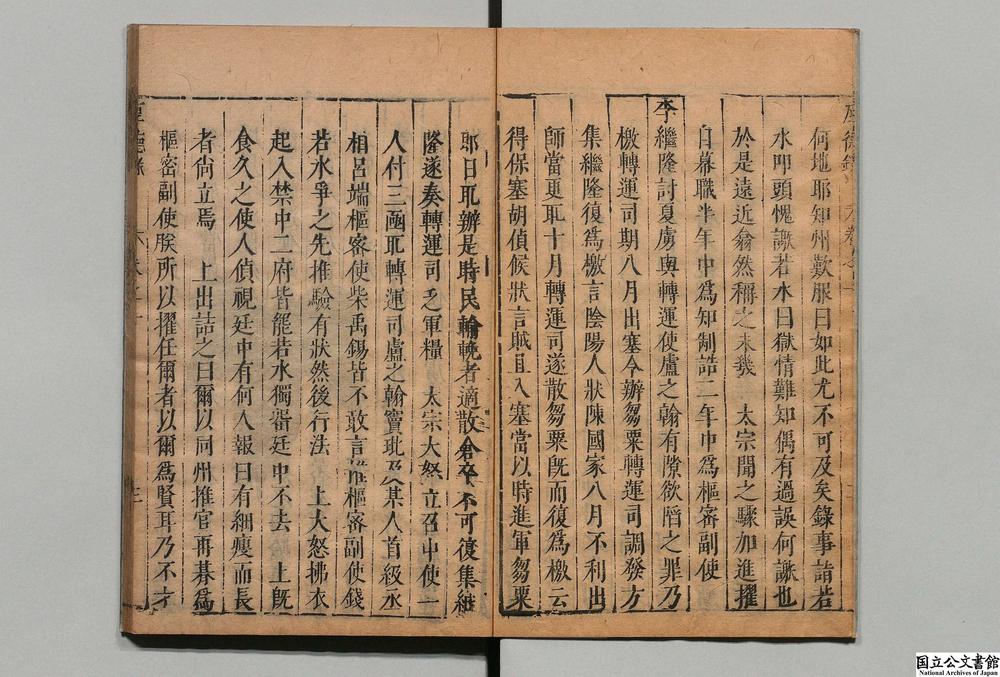 何地耶知州歎服曰如此尤不可及矣錄事詣若
水叩頭愧謝若水曰獄情難知偶有過誤何謝也
於是遠近翕然稱之未幾　太宗聞之驟加進擢
自幕職半年中爲知制誥二年中爲樞密副使
李繼隆討夏虜與轉運使盧之翰有隙欲陷之罪乃
檄轉運司期八月出塞令辦芻粟轉運司調發方
集繼隆復爲檄言陰陽人狀陳國家八月不利出
師當更取十月轉運司遂散芻粟既而復爲檄云
得保塞胡偵候狀言賊且入塞當以時進軍芻粟
即日取辦是時民輸輓者適散倉卒不可復集繼
隆遂奏轉運司乏軍糧　太宗大怒立召中使一
人付三函取轉運司盧之翰竇玭及某人首級丞
相呂端樞密使柴禹錫皆不敢言惟樞密副使錢
若水爭之先推驗有狀然後行法　上大怒拂衣
起入禁中二府皆罷若水獨留廷中不去　上既
食久之使人偵視廷中有何人報曰有細瘦而長
者尙立焉　上出詰之曰爾以同州推官再朞爲
樞密副使朕所以擢任爾者以爾爲賢耳乃不才
国立公文書館
National Archives of Japan